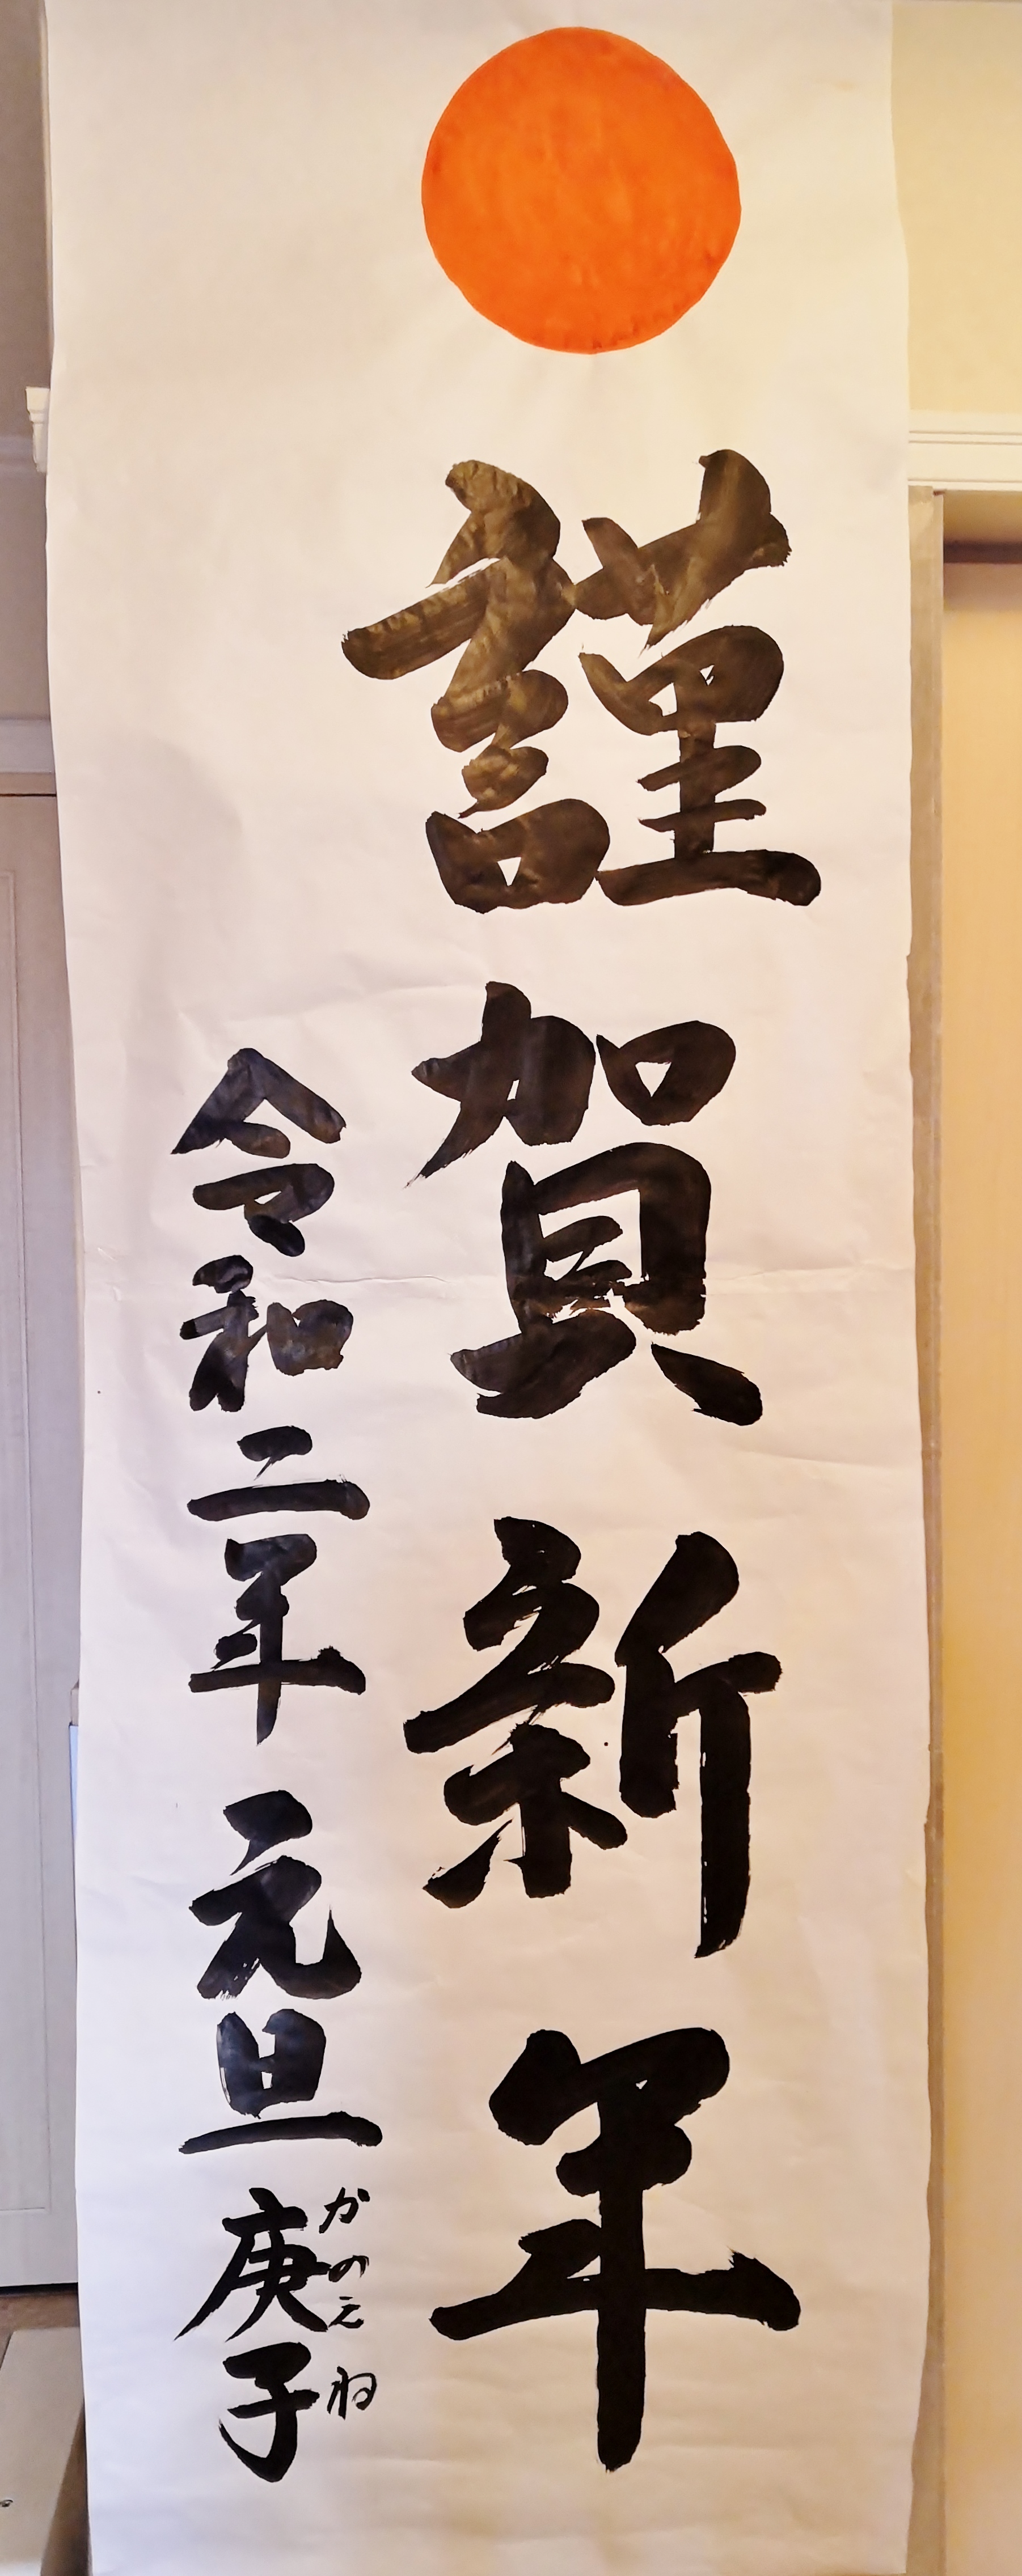 謹賀新年
令和二年 元旦 庚子
かのえ ね